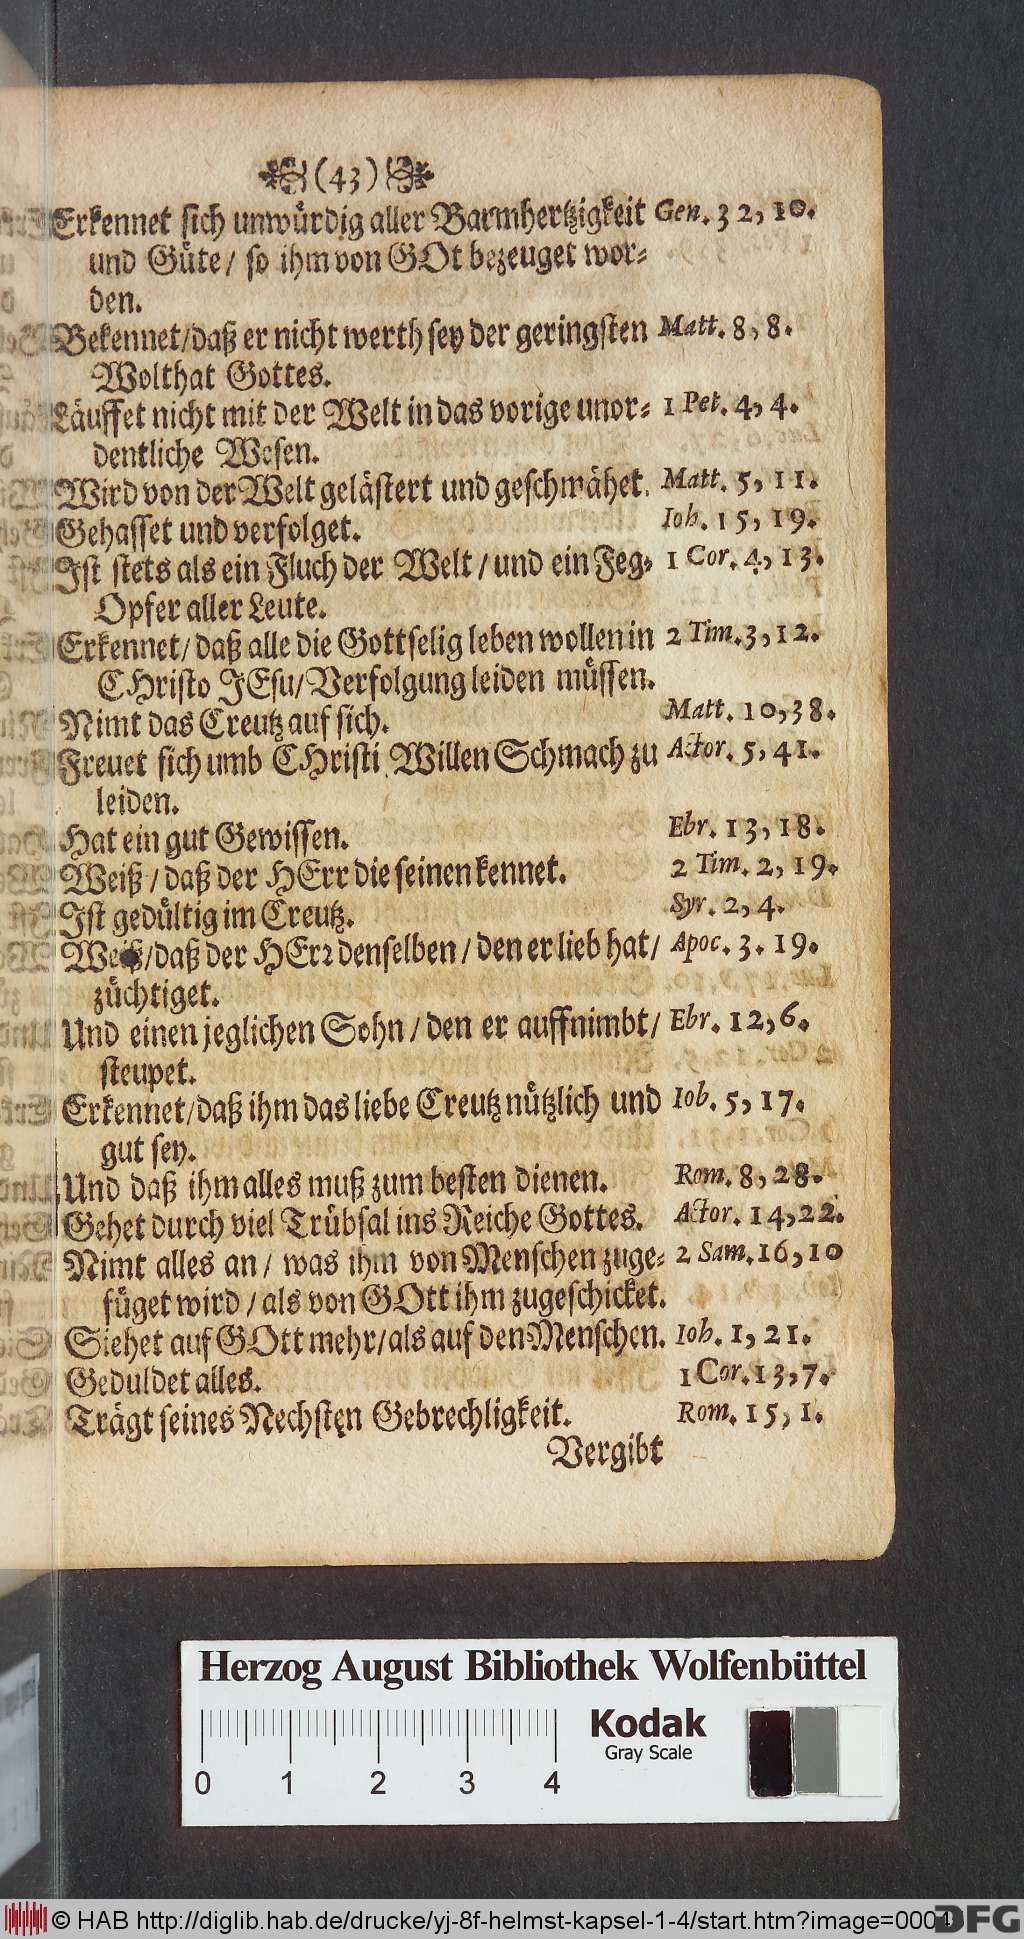 (43)
Erkennet sich unwürdig aller Barmhertzigkeit Gen. 32, 10.
und Güte/ so ihm von GOt bezeuget wor-
den.
Bekennet/daß er nicht werth sey der geringsten Matt. 8, 8.
Wolthat Gottes.
Läuffet nicht mit der Welt in das vorige unor- 1 Pet. 4, 4.
dentliche Wesen.
Wird von der Welt gelästert und geschmähet. Matt. 5, 11.
Gehasset und verfolget. Ioh. 15, 19.
Ist stets als ein Fluch der Welt/und ein Feg- 1 Cor. 4, 13.
Opfer aller Leute.
Erkennet/daß alle die Gottselig leben wollen in 2 Tim. 3, 12.
CHristo JEsu/Verfolgung leiden müssen.
Nimt das Creutz auf sich. Matt. 10, 38.
Freuet sich umb CHristi Willen Schmach zu Actor. 5, 41.
leiden.
Hat ein gut Gewissen. Ebr. 13, 18.
Weiß/daß der HErr die seinen kennet. 2 Tim. 2, 19.
Ist gedültig im Creutz. Syr. 2, 4.
Weiß/daß der HErr denselben/den er lieb hat/ Apoc. 3. 19.
züchtiget.
Und einen jeglichen Sohn/den er auffnimbt/ Ebr. 12, 6.
steupet.
Erkennet/daß ihm das liebe Creutz nützlich und Iob. 5, 17.
gut sey.
Und daß ihm alles muß zum besten dienen. Rom. 8, 28.
Gehet durch viel Trübsal ins Reiche Gottes. Actor. 14, 22.
Nimt alles an/ was ihm von Menschen zuge- 2 Sam. 16, 10
füget wird/als von GOtt ihm zugeschicket.
Siehet auf GOtt mehr/als auf den Menschen. Ioh. 1, 21.
Geduldet alles. 1 Cor. 13, 7.
Trägt seines Nechsten Gebrechligkeit. Rom. 15, 1.
Vergibt
Herzog August Bibliothek Wolfenbüttel
Kodak
Gray Scale
0 1 2 3 4
© HAB http://diglib.hab.de/drucke/yj-8f-helmst-kapsel-1-4/start.htm?image=0004
DFG